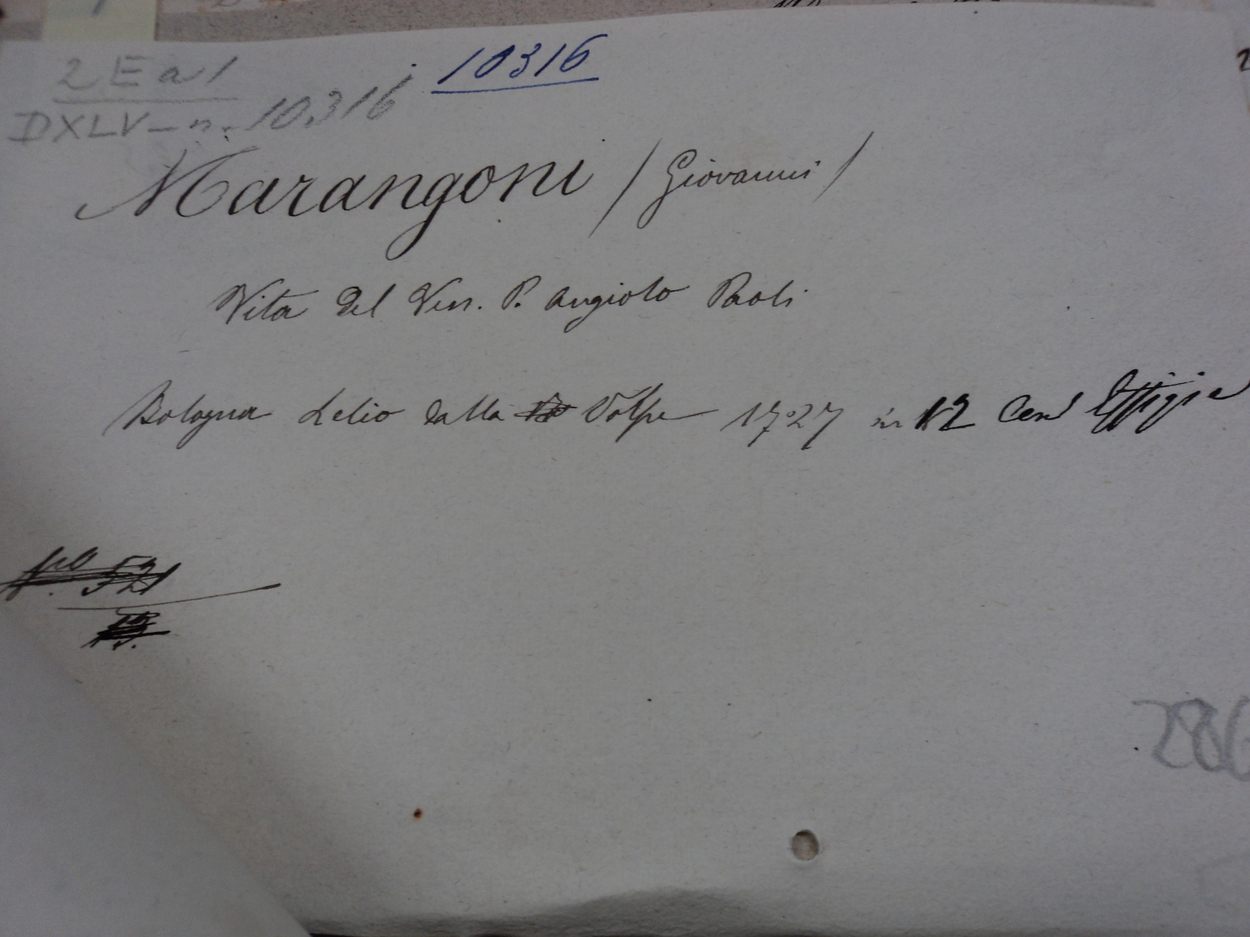 2 E a 1
DXLV - n. 10316
10316
Marangoni /Giovanni/
Vita del Ven. P. Angiolo Paoli
Bologna Lelio dalla Volpe 1727 in 12 Con Effigie
521
286